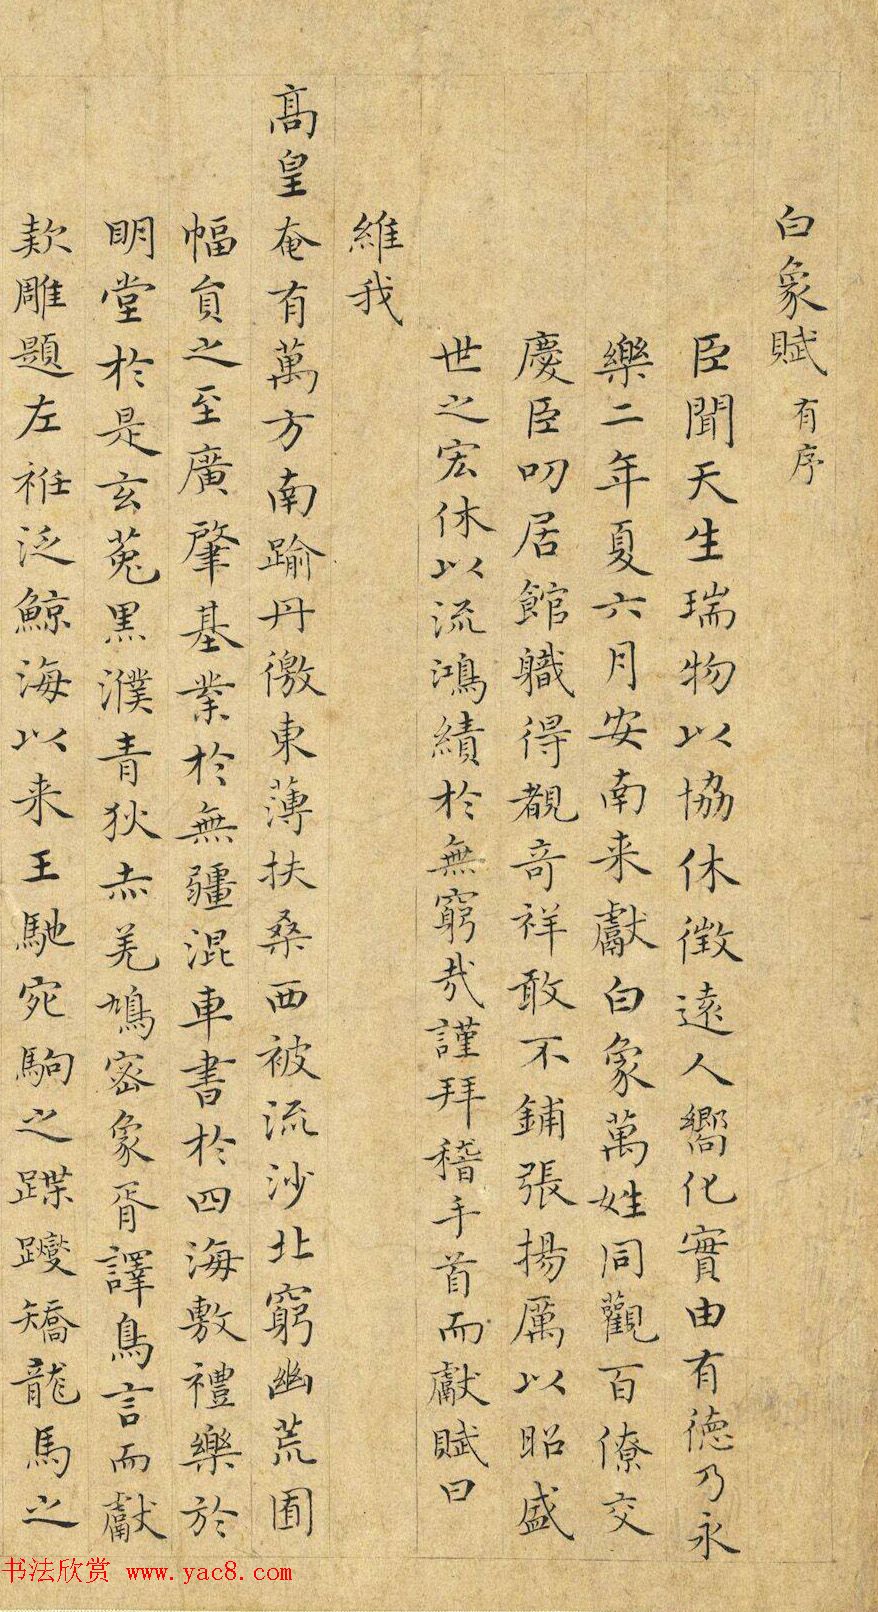 白象賦 有序
臣聞天生瑞物以協休徵遠人嚮化實由有德乃永
樂二年夏六月安南来獻白象萬姓同觀百僚交
慶臣叨居館職得覩竒祥敢不鋪張揚厲以昭盛
世之宏休以流鴻績於無窮㢤謹拜稽手首而獻賦曰
維我
髙皇奄有萬方南踰丹徼東薄扶桑西被流沙北窮幽荒囿
幅員之至廣肇基業於無疆混車書於四海敷禮樂於
明堂於是玄菟黑濮青狄赤羌鳩宻象胥譯鳥言而獻
欵雕題左袵泛鯨海以来王馳宛駒之蹀躞矯龍馬之
书法欣赏 www.yac8.com